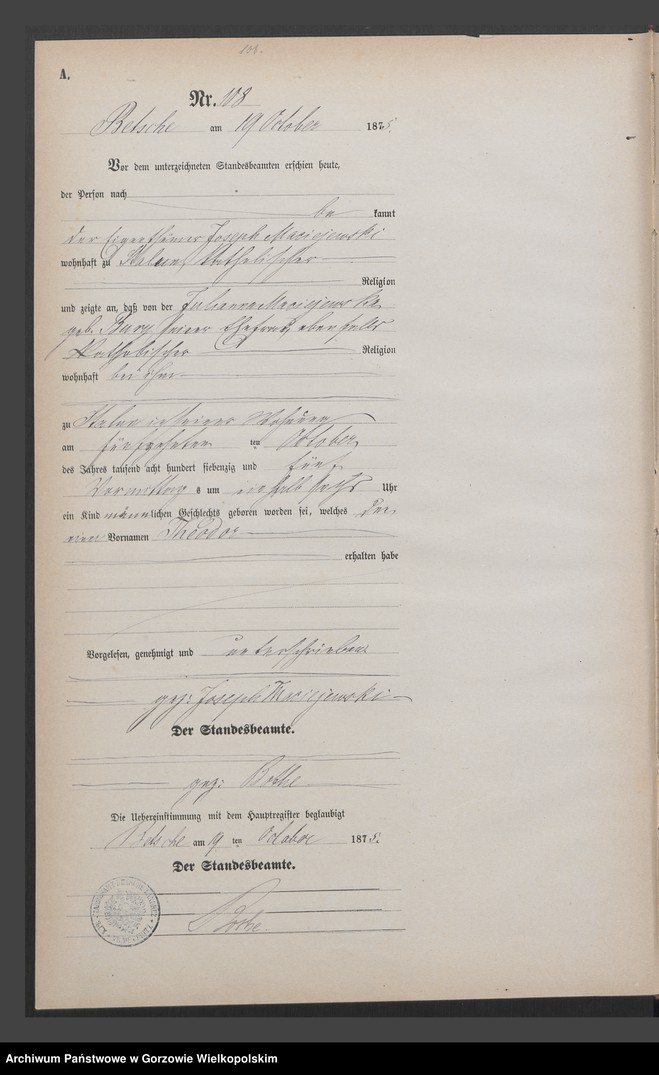 108.
A.
Nr. 108
Betsche am 19 October 1875.
Vor dem unterzeichneten Standesbeamten erschien heute,
der Person nach
be kannt
der Eigenthümer Joseph Maciejewski
wohnhaft zu Katholischer
Religion
und zeigte an, daß von der Julianna Maciejewska
geb. seiner Ehefrau, ebenfalls
Katholischer Religion
wohnhaft bei ihm
zu in seiner Wohnung
am fünfzehnten ten October
des Jahres tausend acht hundert siebenzig und fünf
Vormittag s um ein halb sechs Uhr
ein Kind männlichen Geschlechts geboren worden sei, welches den
Vornamen Theodor
erhalten habe
Vorgelesen, genehmigt und unterschrieben
gez: Joseph Maciejewski
Der Standesbeamte.
gez: Bothe
Die Uebereinstimmung mit dem Hauptregister beglaubigt
Betsche am 19 ten October 1875.
Der Standesbeamte.
Bothe.
Archiwum Państwowe w Gorzowie Wielkopolskim